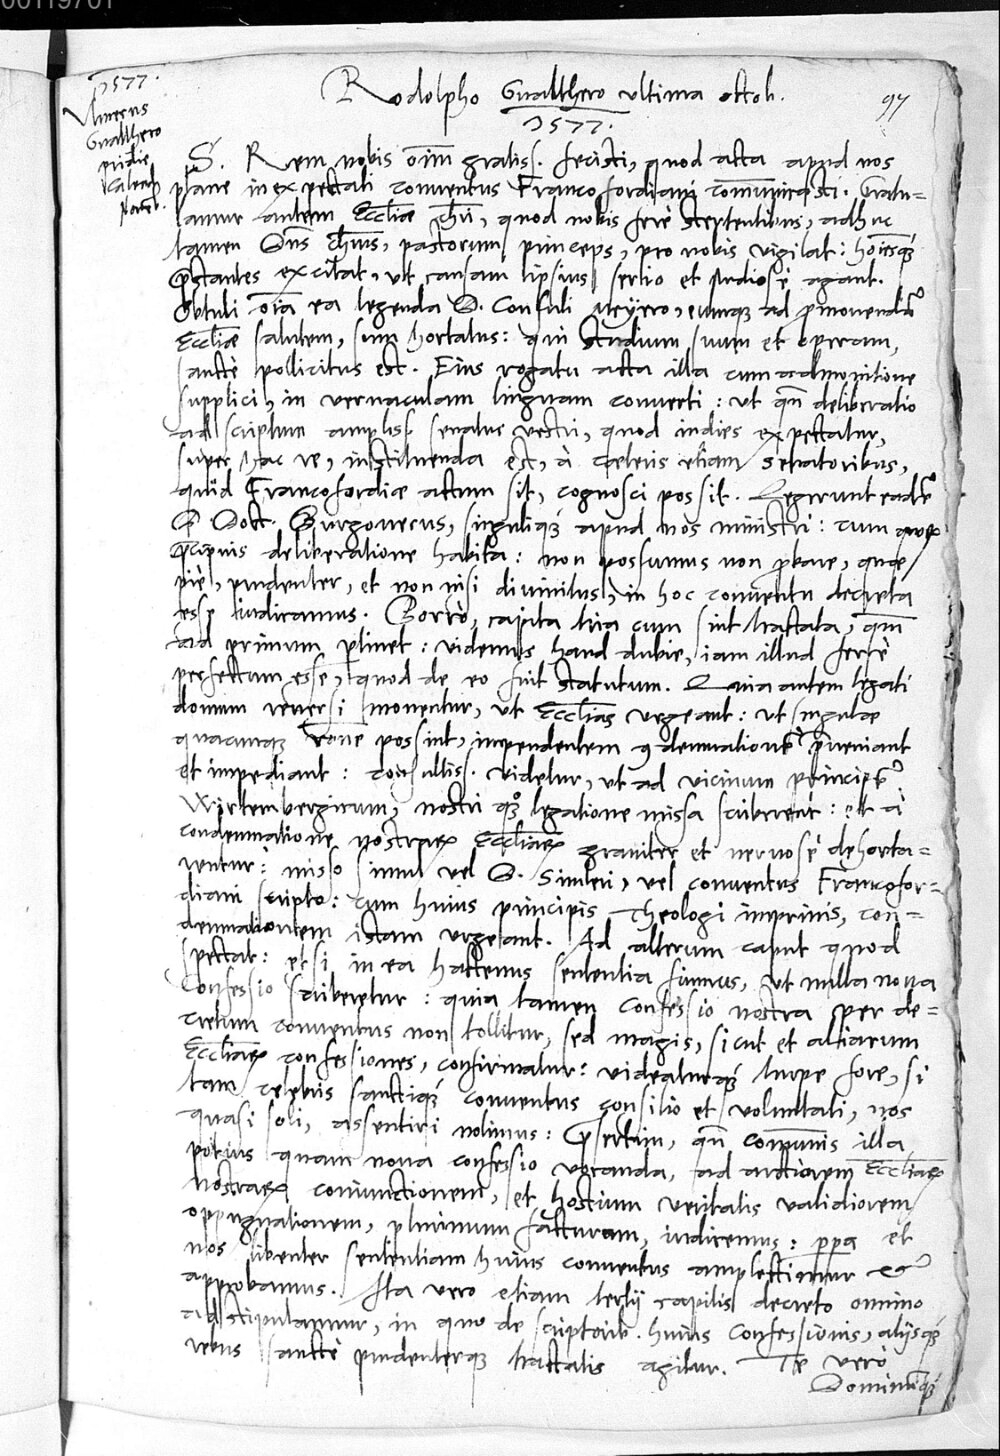 00119701
1577.
Ulmerus
Gualthero
pridie
Calend.
Novēb.
Rodolpho Gualthero ultima octob.
1577.
97
S. Rem nobis oīm gratiss. fecisti, quod acta apud nos
plane inexpectati conventus Francofordiani com̄unicasti. Gratu=
lamur autem Eccliæ Chri, quod nobis ferè stertentibus, adhuc
tamen Dn̄s Chrus, pastorum princeps, pro nobis vigilat: hoīesq́
p̄stantes excitat, ut causam ipsius serio et studiosè agant.
Obtuli oīa ea legenda D. Consuli Meyero, eumq ad promovendā
Eccliæ salutem, sum hortatus: qui studium suum et operam,
sanctè pollicitus est. Eius rogatu acta illa cum admonitione
supplici, in vernaculam linguam converti: ut qn̄ deliberatio
ad scriptum ampliss. senatus vestri, quod indies expectatur,
super hac re, instituenda est, à cæteris etiam senatoribus,
quid Francofordiæ actum sit, cognosci possit. Legerunt eadē
D. Doct. Burgowerus, singuliq́ apud nos ministri: cum quoꝝ
p̄cipuis deliberatione habita: non possumus non probare, quæ
piè, prudenter, et non nisi divinitus, in hoc conventu decreta
esse iudicamus. Porrò, capita tria cum sint tractata, qm̄
ad primum ptinet: videmus haud dubie, iam illud ferè
perfectum esse, quod de eo fuit statutum. Quia autem legati
domum reversi monentur, ut Ecclias urgeant: ut singulæ
quacunq rōne possint, impendentem condemnationē præveniant
et impediant: consultiss. videtur, ut ad vicinum principē
Wirtembergicum, nostri qȝ legatione missa scriberent: et à
condemnatione nostraꝝ Eccliaꝝ graviter et nervosè dehorta=
rentur: misso simul vel D. Simleri, vel conventus Francofor=
diani scripto: cum huius principis Theologi imprimis, con=
demnationem istam urgeant. Ad alterum caput quod
spectat: etsi in ea hactenus sententia fuimus, ut nulla nova
Confessio scriberetur: quia tamen Confessio nostra per de=
cretum conventus non tollitur, sed magis, sicut et aliarum
Eccliaꝝ confessiones, confirmatur: videaturq́ turpe fore, si
tam celebris sanctiq́ conventus consilio et voluntati, nos
quasi soli, assentiri nolimus: p̄sertim, qn̄ com̄unis illa
potius quam nova confessio vocanda, ad arctiorem Eccliaꝝ
nostraꝝ coniunctionem, et hostium veritatis validiorem
oppugnationem, plurimum facturam, iudicemus: ppea et
nos libenter sententiam huius conventus amplectimur et
approbamus. Ita vero etiam tertij capitis decreto omnino
adstipulamur, in quo de scriptorib. huius Confessionis, alijsq́
rebus sanctè prudenterq tractatis agitur. Te verò
Dominumq́